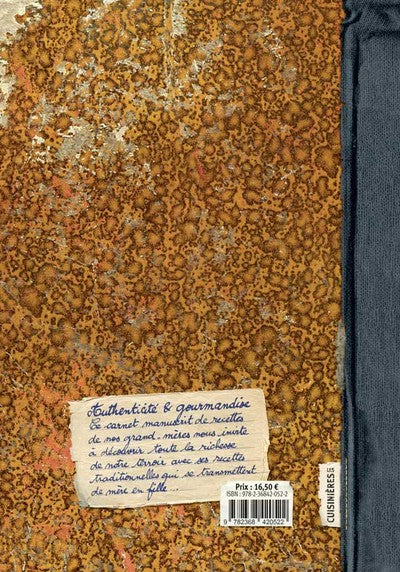 Authenticité & gourmandise
Ce carnet manuscrit de recettes
de nos grand-mères nous invite
à découvrir toute la richesse
de notre terroir avec ses recettes
traditionnelles qui se transmettent
de mère en fille ...
Prix : 16,50 €
ISBN : 978-2-36842-052-2
9 782368 420522
CUISINIÈRES